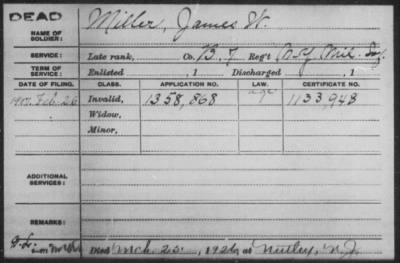 DEAD
NAME OF SOLDIER: Miller, James W.
SERVICE: Late rank, Co. B. 7 Reg't N.Y. Mil. Inf.
TERM OF SERVICE: Enlisted , 1 Discharged , 1
DATE OF FILING. CLASS. APPLICATION NO. LAW. CERTIFICATE NO.
1907. Feb. 26 Invalid, 1358,868 age 1133,948
Widow,
Minor,
ADDITIONAL SERVICES:
REMARKS:
Died Mch. 25, 1926 at Nutley, N.J.